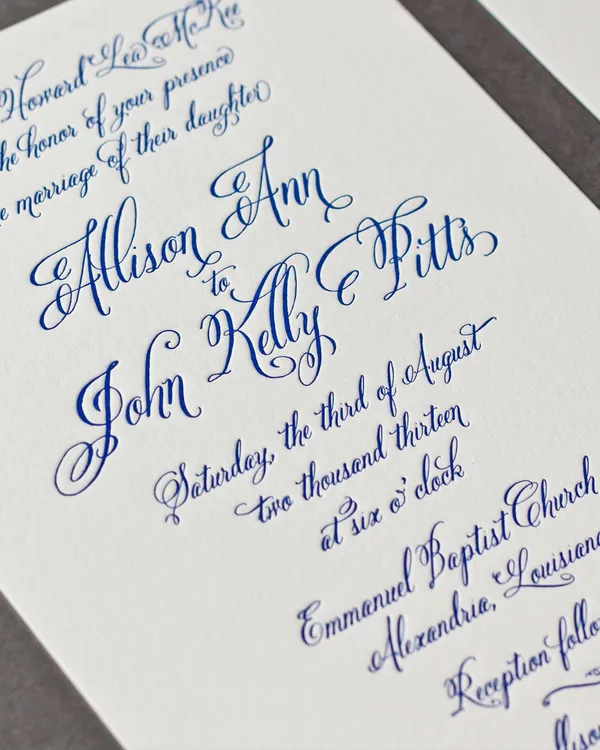 Howard Lea McKee
the honor of your presence
marriage of their daughter
Allison Ann
to
John Kelly Pitts
Saturday, the third of August
two thousand thirteen
at six o'clock
Emmanuel Baptist Church
Alexandria, Louisiana
Reception